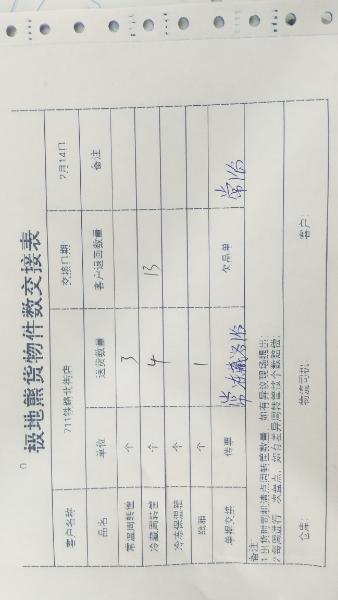 极地熊货物件数交接表
客户名称 711铁路北街店 交接日期 7月14日
品名 单位 送货数量 客户退回数量 备注
常温周转筐 个 3
冷藏周转筐 个 4 13
冷冻保温箱 个
纸箱 个 1
单据交接 传票 常冷藏冷冻 欠品单 常冷
备注
1.出货时司机清点周转筐数量，如有异议现场提出；
2.每周进行一次盘点，如有差异周转筐按个数赔偿；
仓库： 物流司机： 客户：